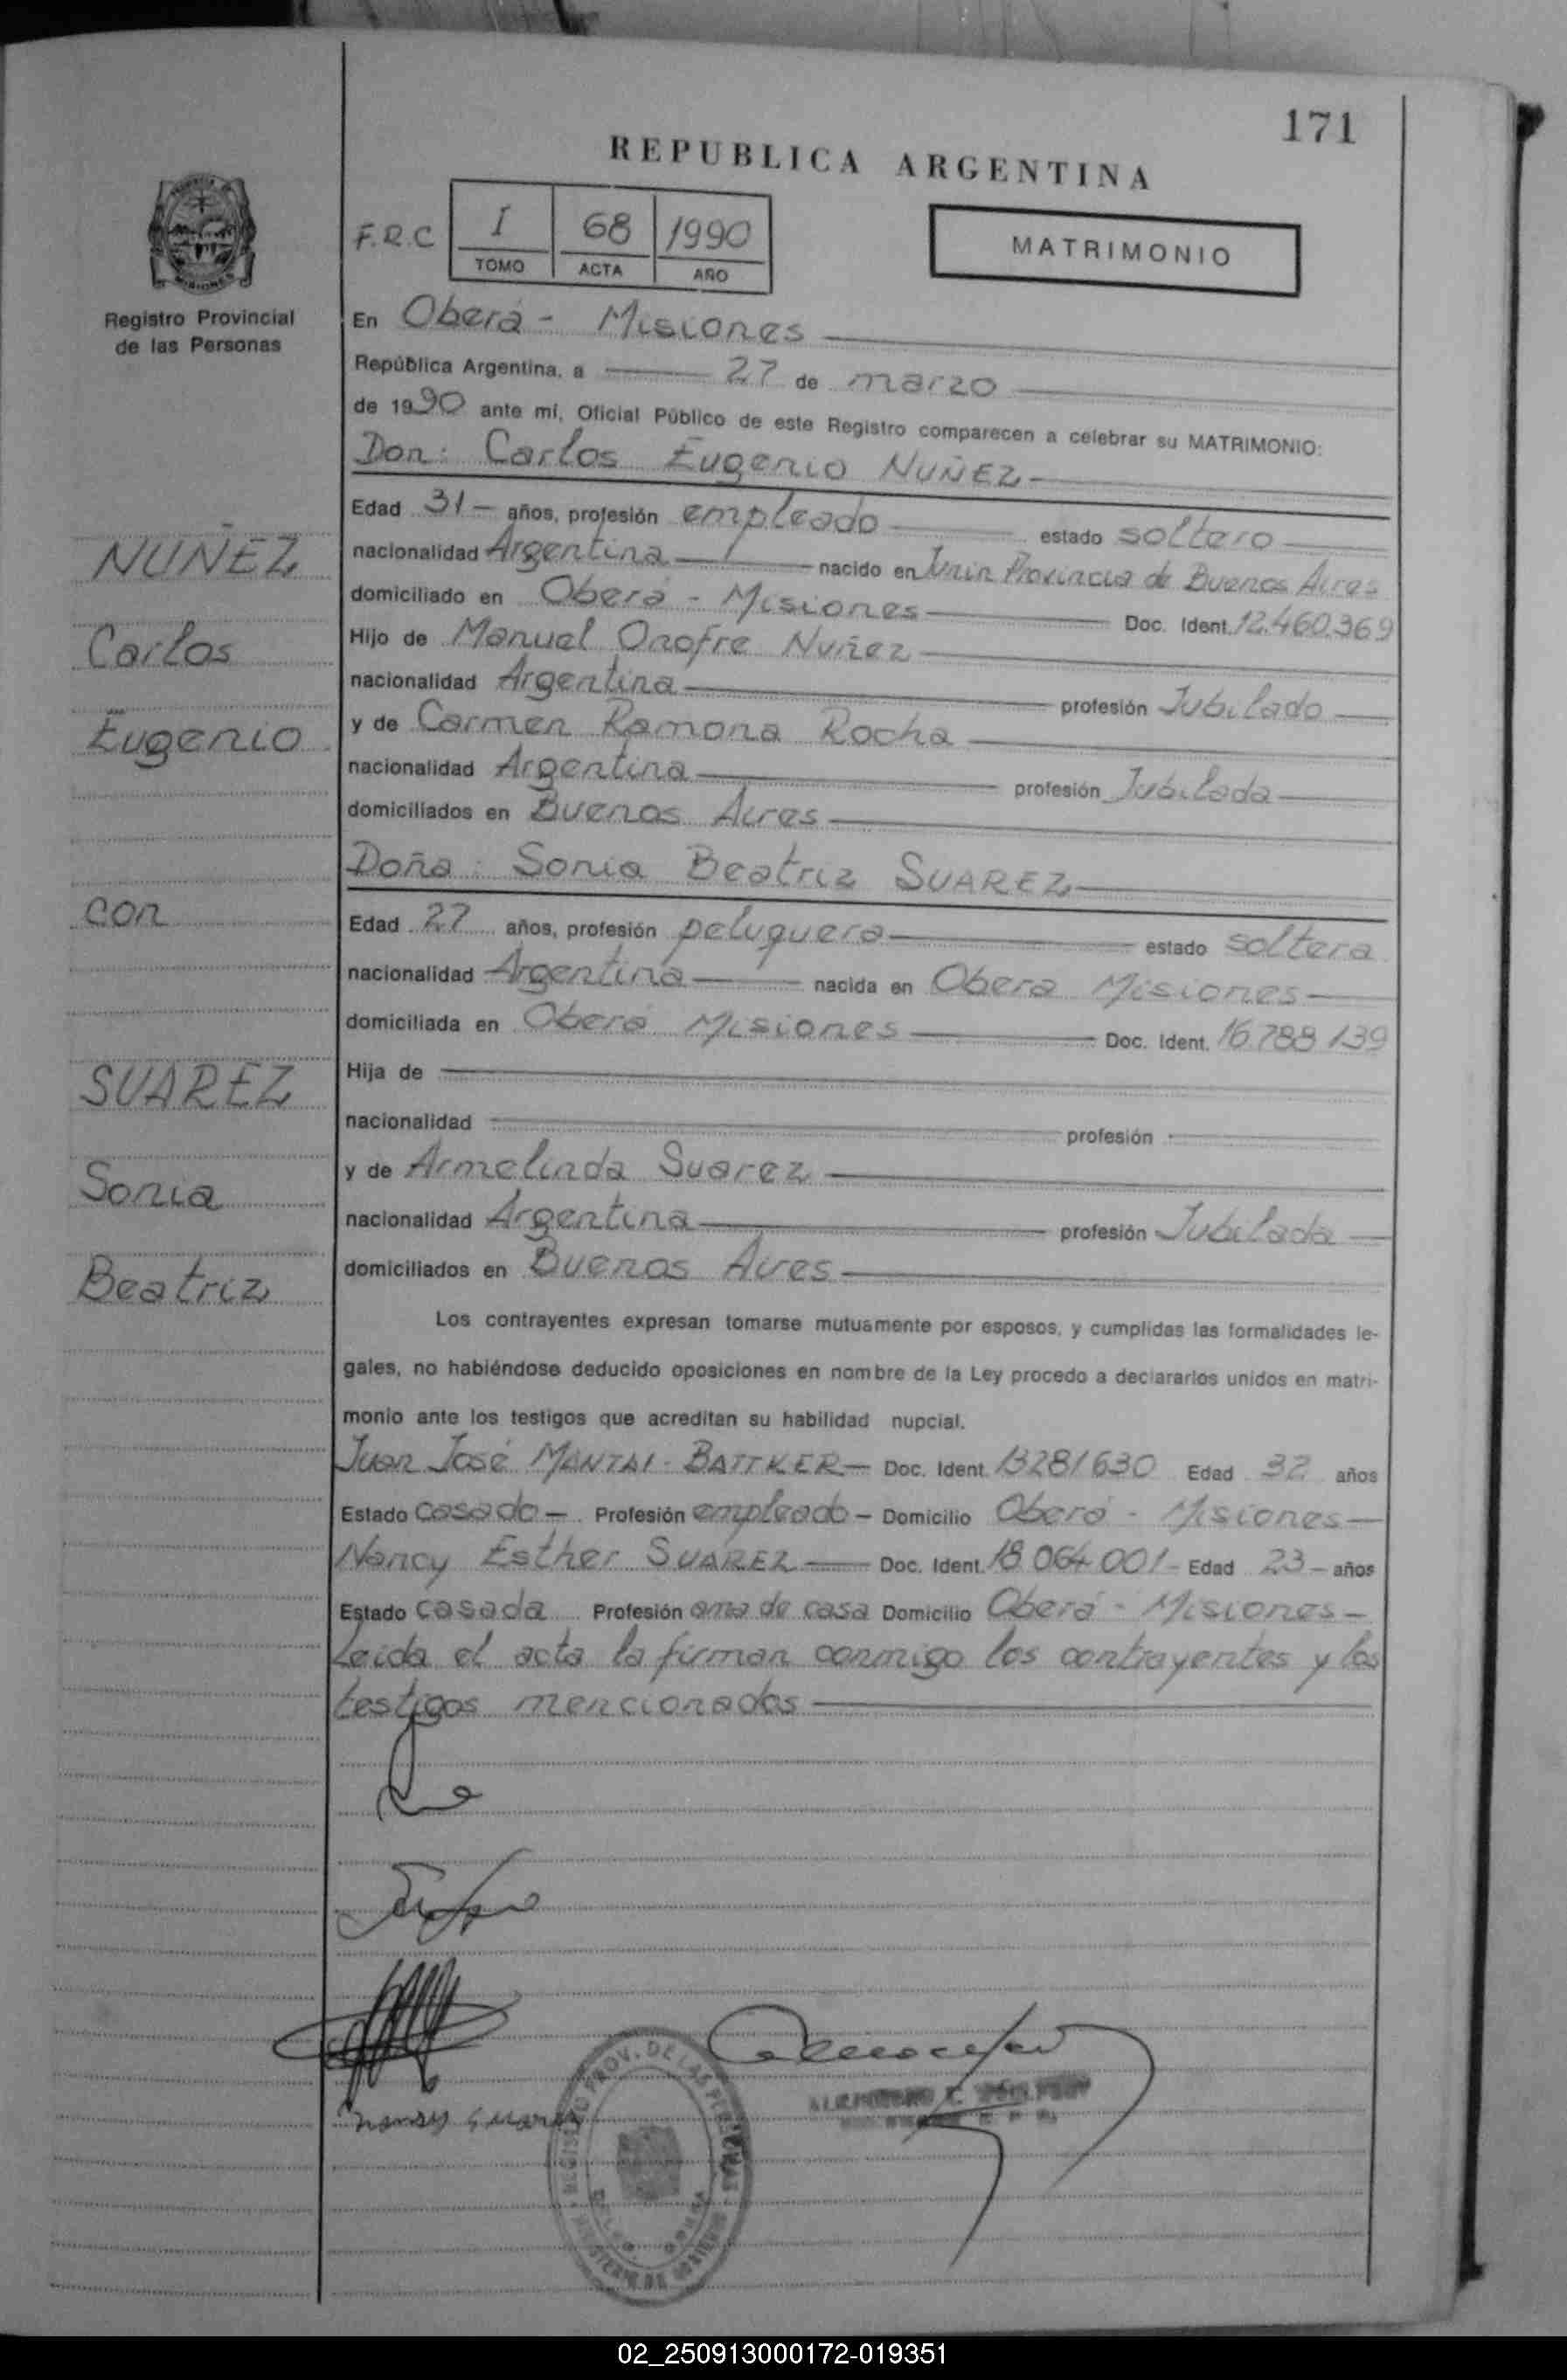 171
REPUBLICA ARGENTINA
F.R.C I 68 1990
TOMO ACTA AÑO
MATRIMONIO
Registro Provincial
de las Personas
En Oberá - Misiones
República Argentina, a 27 de marzo
de 1990 ante mi, Oficial Público de este Registro comparecen a celebrar su MATRIMONIO:
Don: Carlos Eugenio NUÑEZ
Edad 31 años, profesión empleado estado soltero
nacionalidad Argentina nacido en Junin Provincia de Buenos Aires
domiciliado en Oberá - Misiones Doc. Ident. 12.460.369
Hijo de Manuel Onofre Nuñez
nacionalidad Argentina profesión Jubilado
y de Carmen Ramona Rocha
nacionalidad Argentina profesión Jubilada
domiciliados en Buenos Aires
Doña: Sonia Beatriz SUAREZ
Edad 27 años, profesión peluquera estado soltera
nacionalidad Argentina nacida en Obera Misiones
domiciliada en Oberá Misiones Doc. Ident. 16.788 139
Hija de
nacionalidad profesión
y de Armelinda Suarez
nacionalidad Argentina profesión Jubilada
domiciliados en Buenos Aires
Los contrayentes expresan tomarse mutuamente por esposos, y cumplidas las formalidades le-
gales, no habiéndose deducido oposiciones en nombre de la Ley procedo a declararlos unidos en matri-
monio ante los testigos que acreditan su habilidad nupcial.
Juan José MANTAI - BATTKER Doc. Ident. 13281630 Edad 32 años
Estado casado Profesión empleado Domicilio Oberá - Misiones
Nancy Esther SUAREZ Doc. Ident. 18 064 001 Edad 23 años
Estado casada Profesión ama de casa Domicilio Oberá - Misiones
Leida el acta la firman conmigo los contrayentes y los
testigos mencionados
NUÑEZ
Carlos
Eugenio
con
SUAREZ
Sonia
Beatriz
Nancy Suarez
REGISTRO PROV. DE LAS PERSONAS
02_250913000172-019351